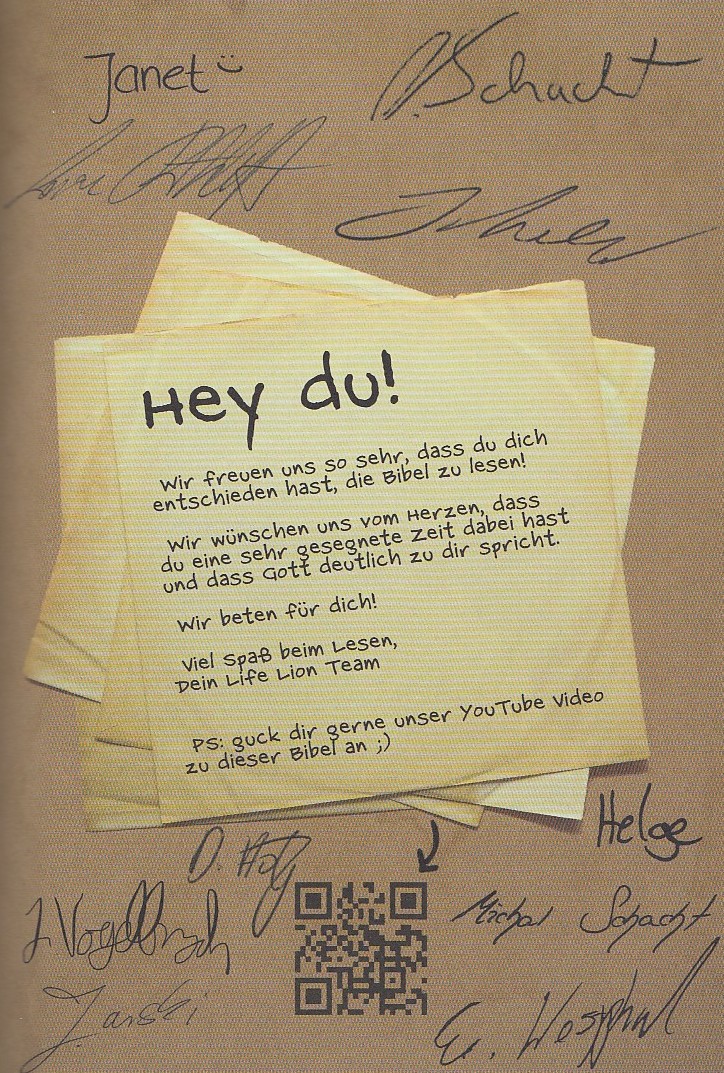 Janet
Schacht
Hey du!
Wir freuen uns so sehr, dass du dich
entschieden hast, die Bibel zu lesen!
Wir wünschen uns vom Herzen, dass
du eine sehr gesegnete Zeit dabei hast
und dass Gott deutlich zu dir spricht.
Wir beten für dich!
Viel Spaß beim Lesen,
Dein Life Lion Team
PS: guck dir gerne unser YouTube Video
zu dieser Bibel an ;)
Helge
D.
Michal Schacht
J. Janski
Westphal